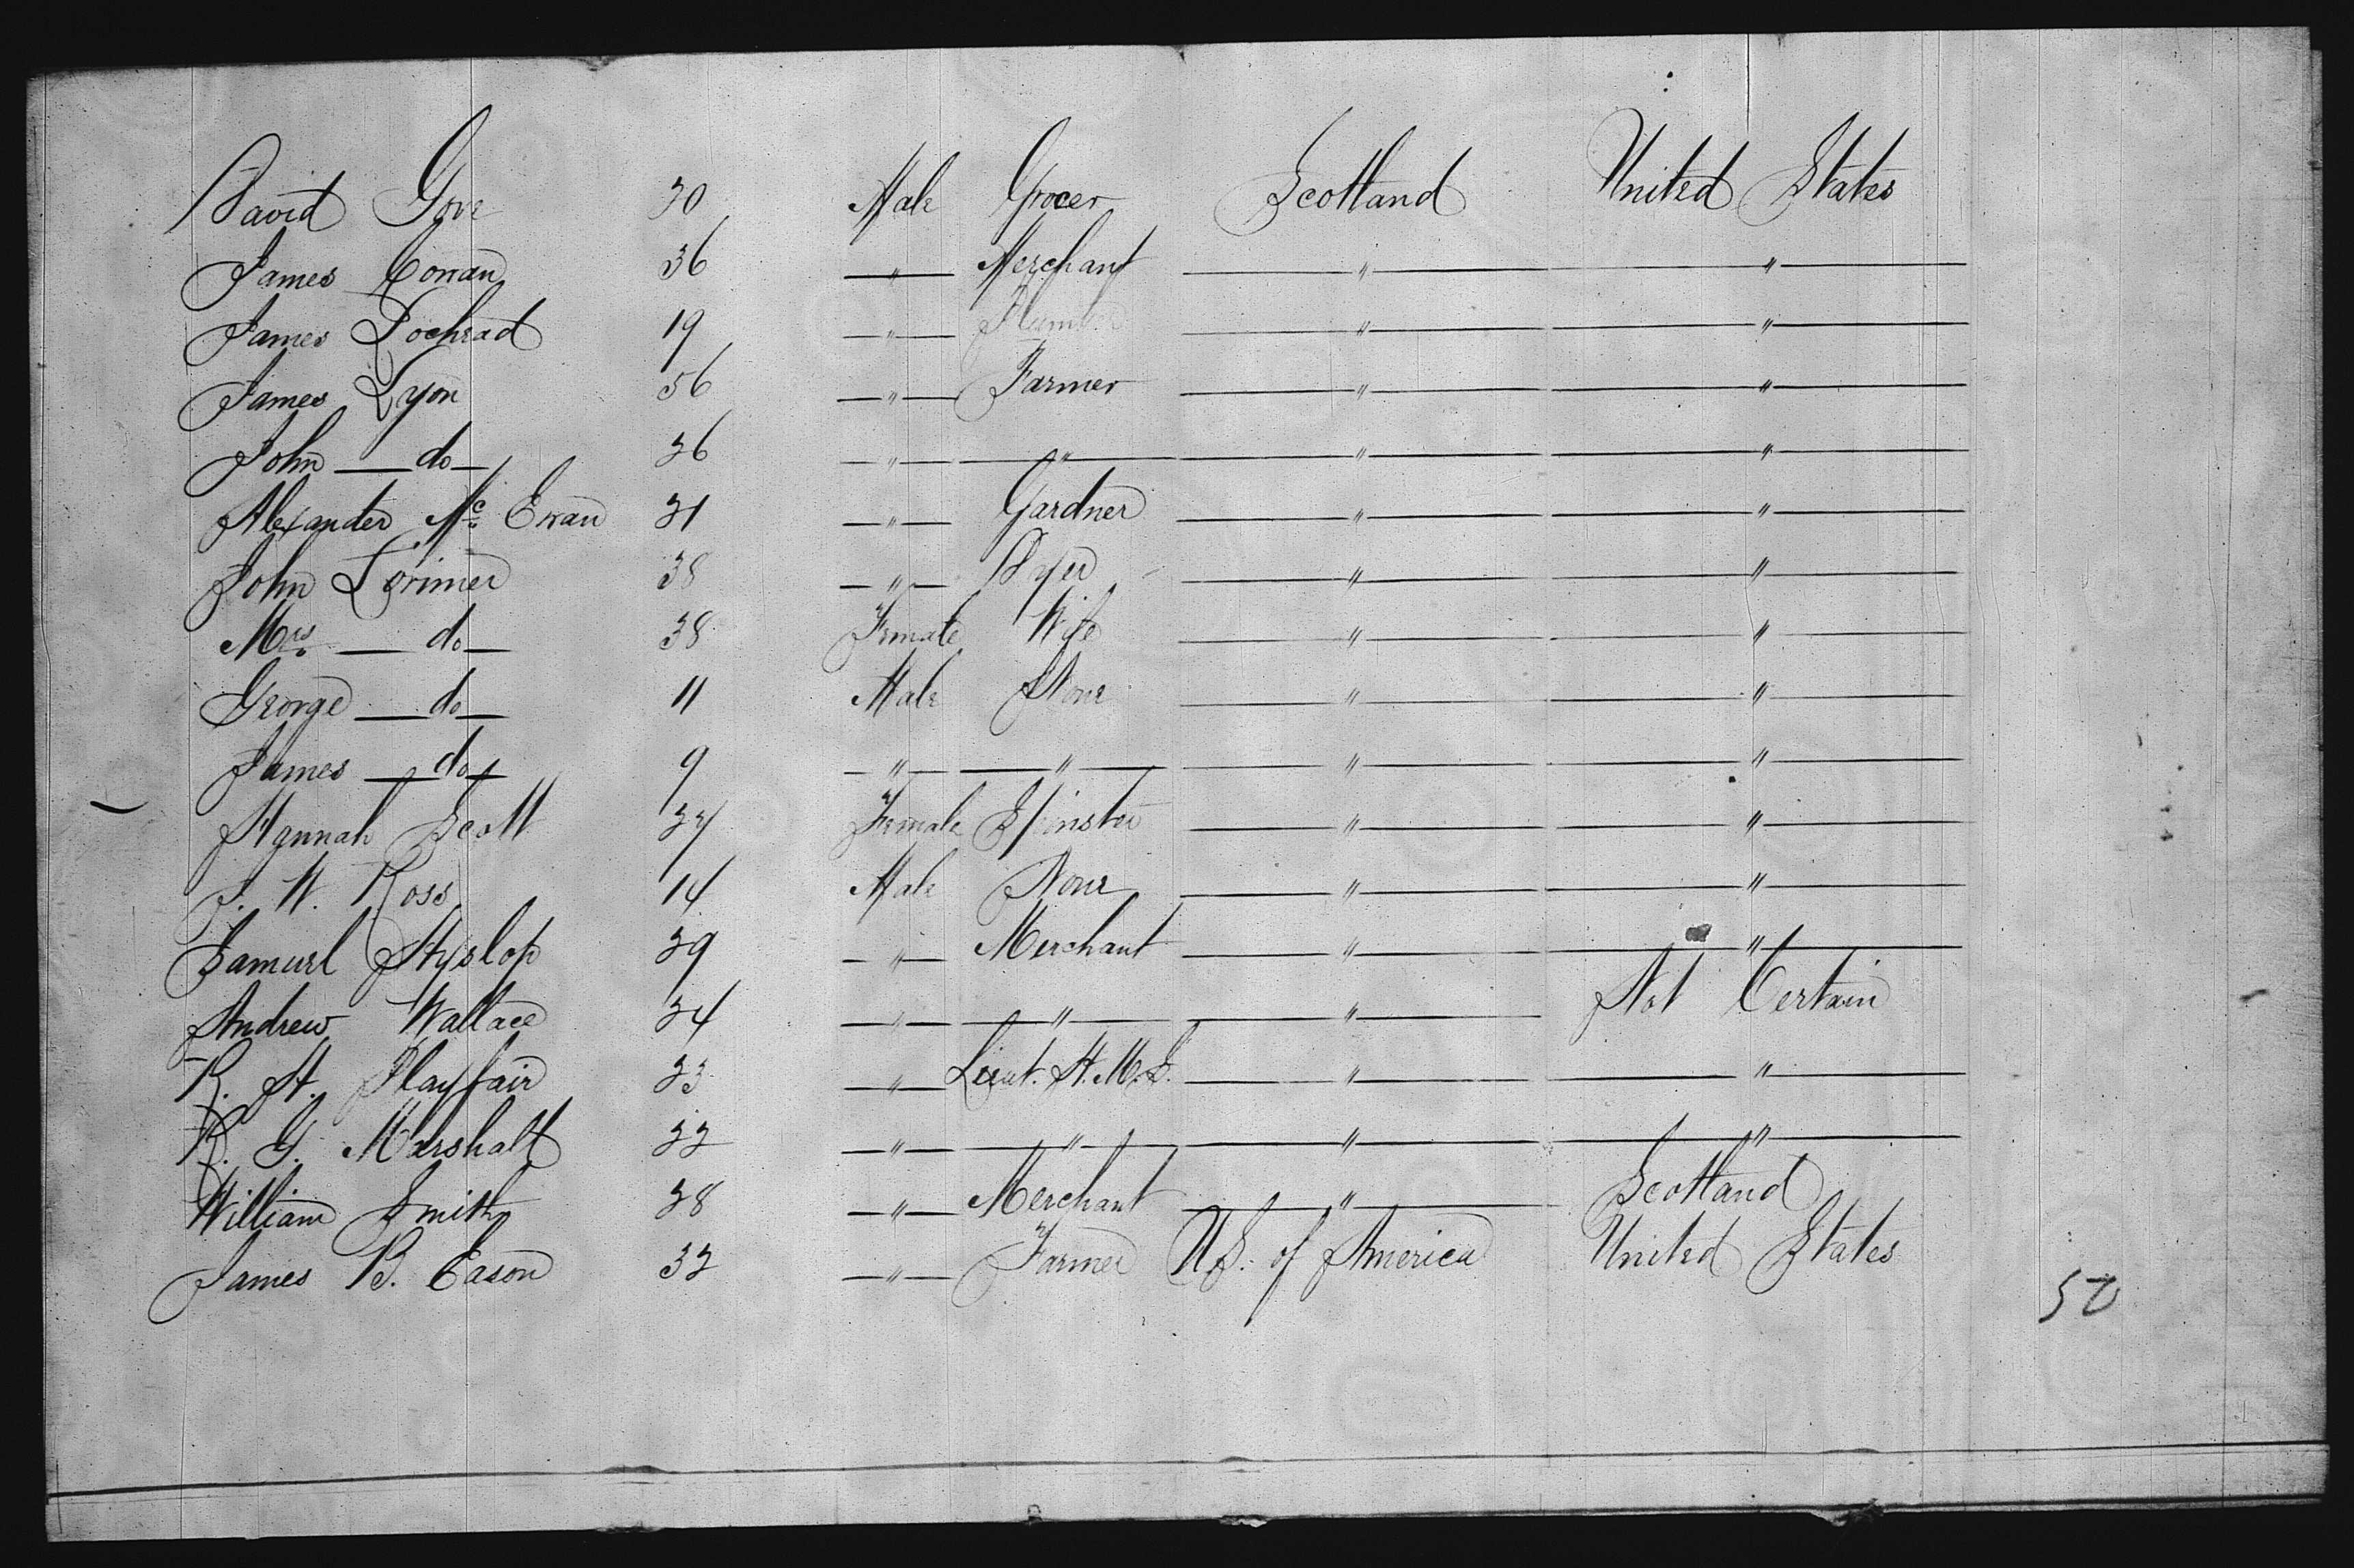 David Gove 30 Male Grocer Scotland United States
James Cowan 36 " Merchant " "
James Lochead 19 " Plumber " "
James Lyon 56 " Farmer " "
John do 26 " " " "
Alexander Mc Ewan 21 " Gardner " "
John Lorimer 38 " Dyer " "
Mrs do 38 Female Wife " "
George do 11 Male None " "
James do 9 " " " "
Hannah Scott 27 Female Spinster " "
J. W. Ross 14 Male None " "
Samuel Hyslop 29 " Merchant " "
Andrew Wallace 24 " " " Not Certain
R. H. Playfair 23 " Lieut. H.M.S. " "
R. G. Marshall 22 " " " "
William Smith 28 " Merchant " Scotland
James B. Eason 32 " Farmer U.S. of America United States
50